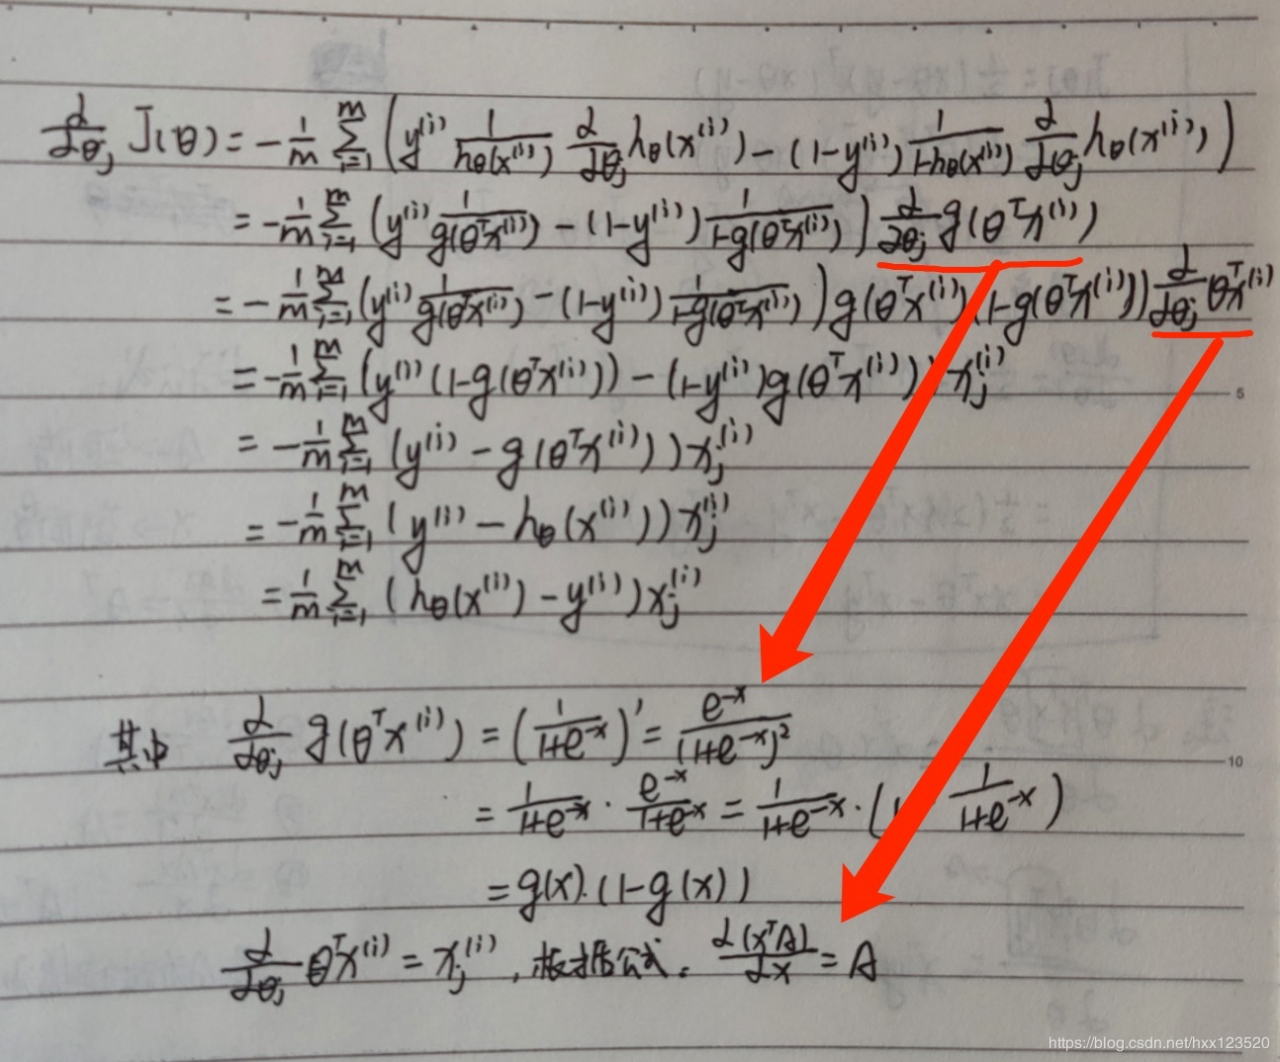 ∂/∂θj J(θ) = -1/m Σ_{i=1}^{m} ( y^(i) 1/hθ(x^(i)) ∂/∂θj hθ(x^(i)) - (1-y^(i)) 1/(1-hθ(x^(i))) ∂/∂θj hθ(x^(i)) )
= -1/m Σ_{i=1}^{m} ( y^(i) 1/g(θ^T x^(i)) - (1-y^(i)) 1/(1-g(θ^T x^(i))) ) ∂/∂θj g(θ^T x^(i))
= -1/m Σ_{i=1}^{m} ( y^(i) 1/g(θ^T x^(i)) - (1-y^(i)) 1/(1-g(θ^T x^(i))) ) g(θ^T x^(i)) (1-g(θ^T x^(i))) ∂/∂θj θ^T x^(i)
= -1/m Σ_{i=1}^{m} ( y^(i) (1-g(θ^T x^(i))) - (1-y^(i)) g(θ^T x^(i)) ) xj^(i)
5
= -1/m Σ_{i=1}^{m} ( y^(i) - g(θ^T x^(i)) ) xj^(i)
= -1/m Σ_{i=1}^{m} ( y^(i) - hθ(x^(i)) ) xj^(i)
= 1/m Σ_{i=1}^{m} ( hθ(x^(i)) - y^(i) ) xj^(i)
其中 ∂/∂θj g(θ^T x^(i)) = ( 1/(1+e^-x) )' = e^-x/(1+e^-x)^2
10
= 1/(1+e^-x) · e^-x/(1+e^-x) = 1/(1+e^-x) · (1 1/(1+e^-x))
= g(x)·(1-g(x))
∂/∂θj θ^T x^(i) = xj^(i) , 根据公式. ∂(x^T A)/∂x = A
https://blog.csdn.net/hxx123520